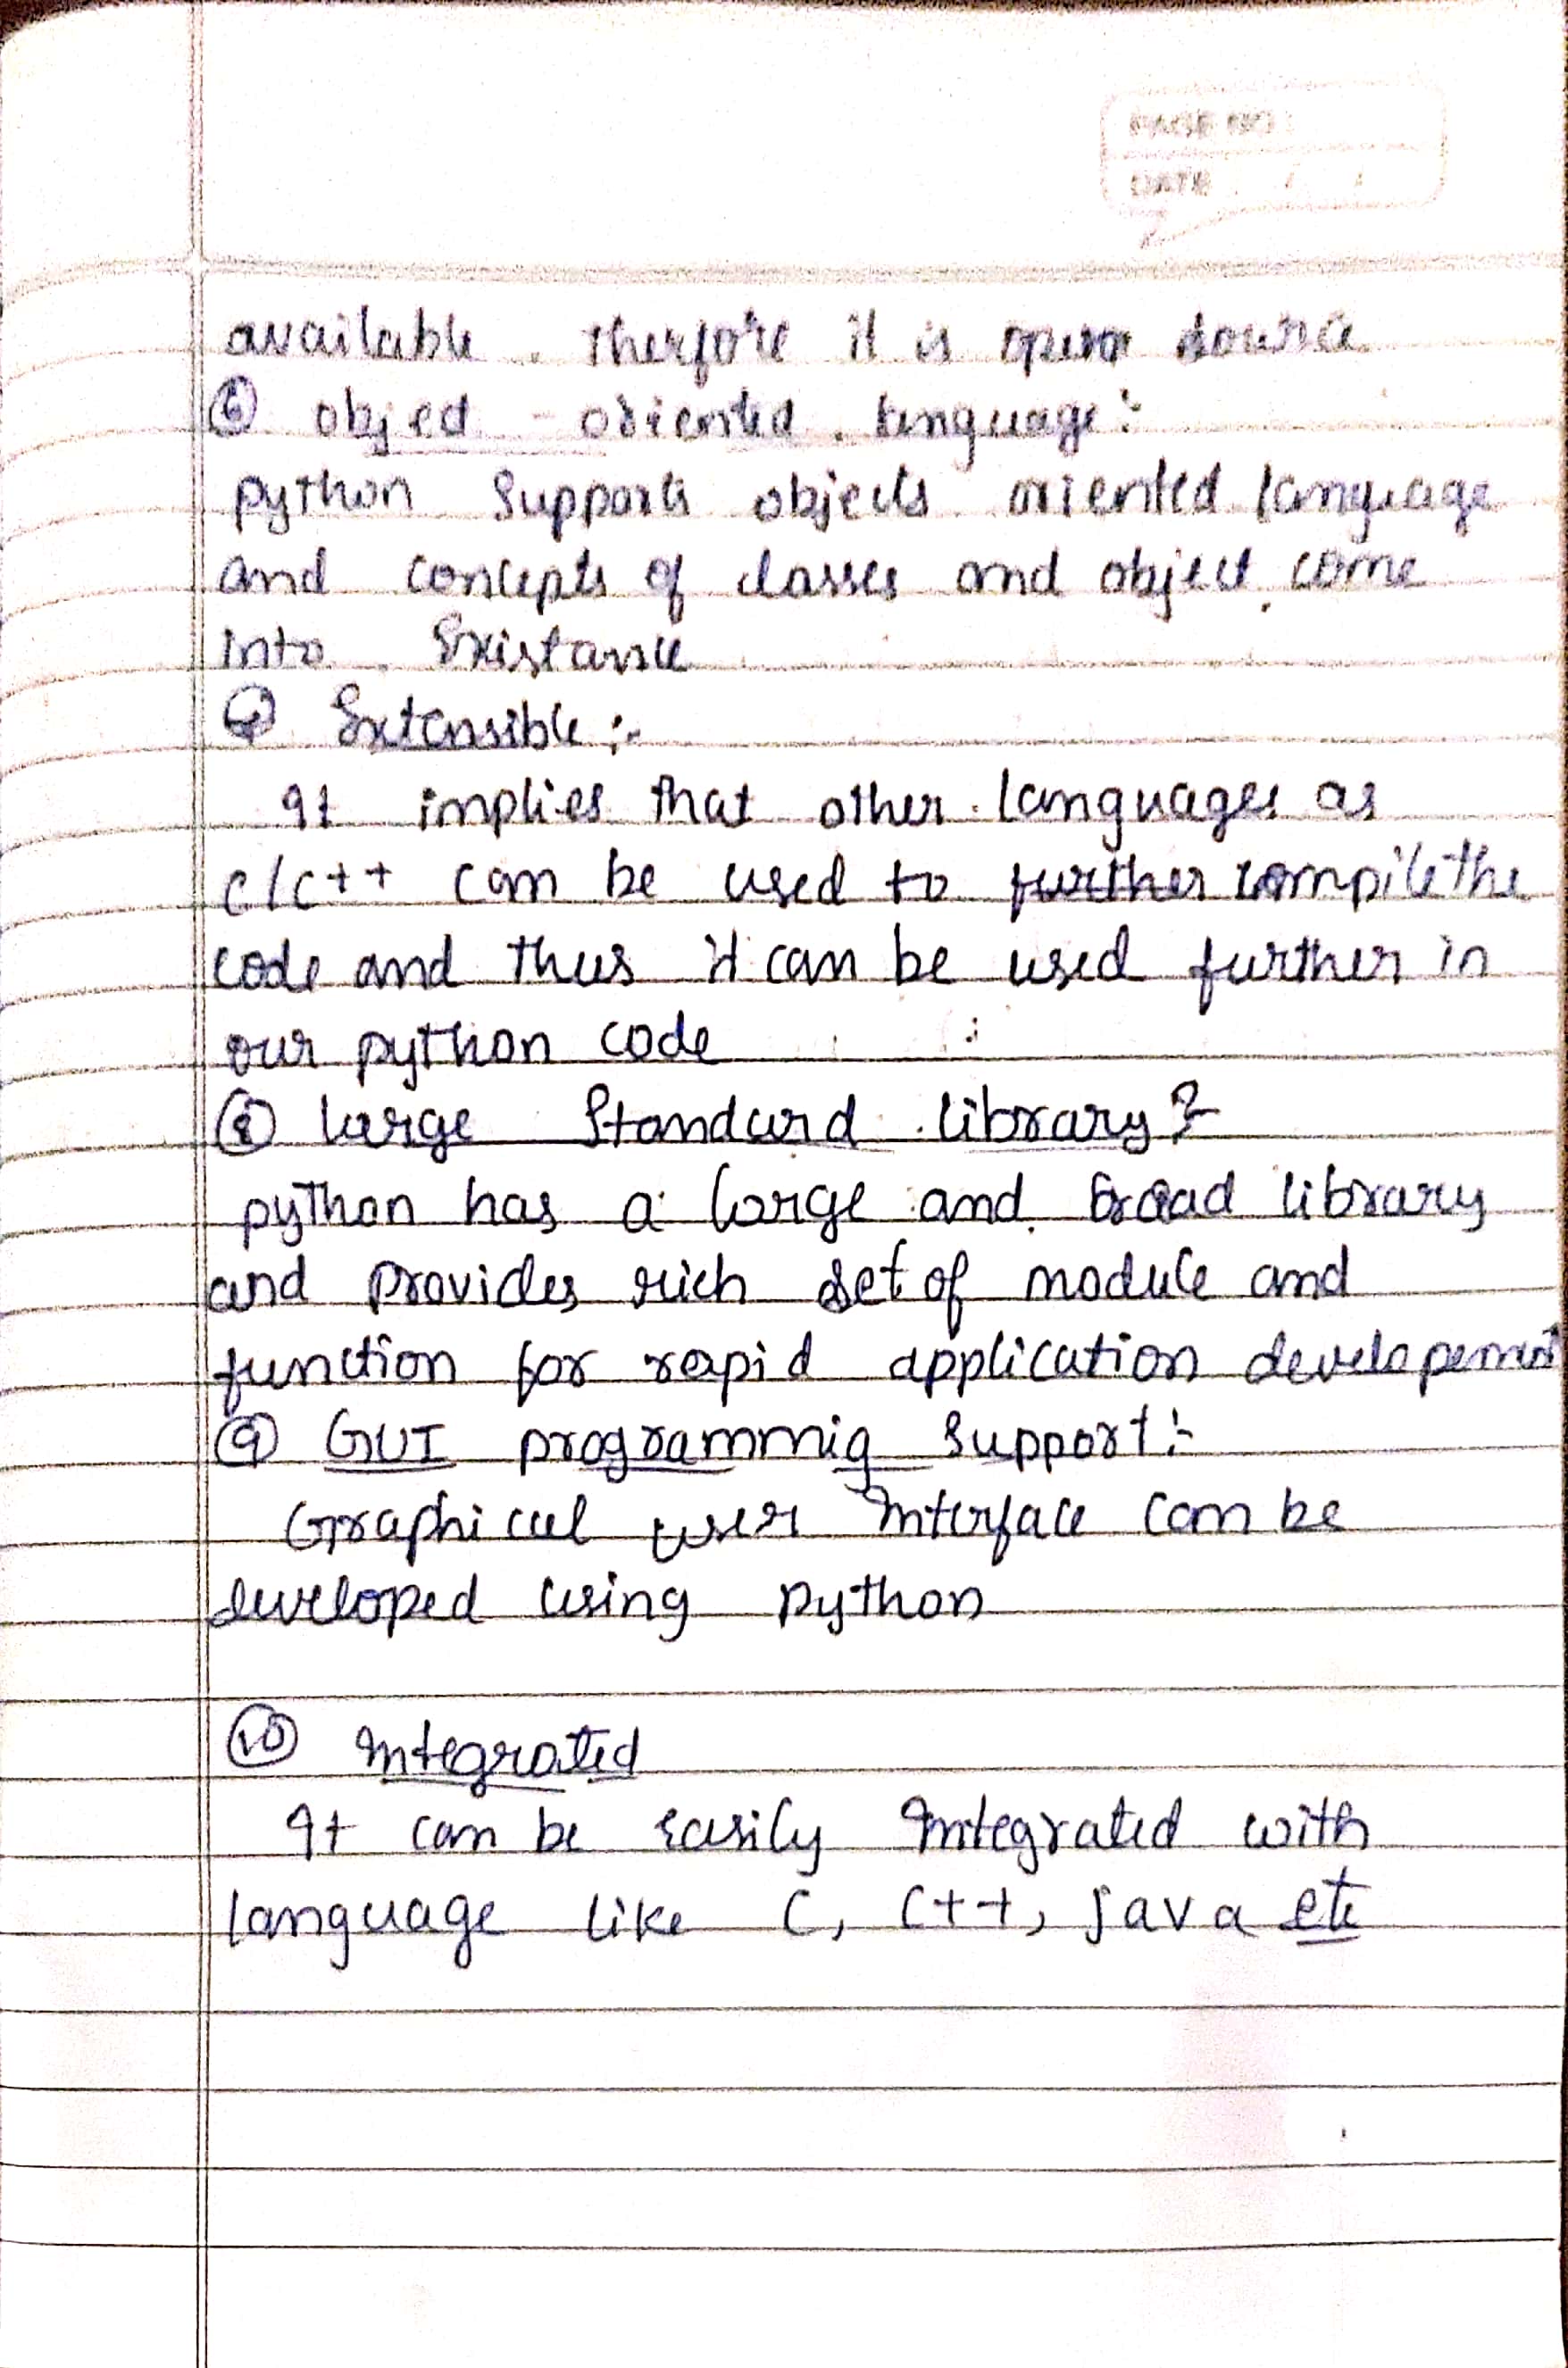 available. Therfore it is open source
⑥ object - oriented language:-
python supports objects oriented language
and concepts of classes and object come
into Existance
⑦ Extensible :-
It implies that other languages as
c/c++ can be used to further compile the
code and thus it can be used further in
our python code
⑧ large Standard library:-
python has a large and broad library
and provides rich set of module and
function for rapid application developement
⑨ GUI programmig support:-
Graphical user Interface can be
developed using python
⑩ Integrated
It can be easily Integrated with
language like C, C++, java etc